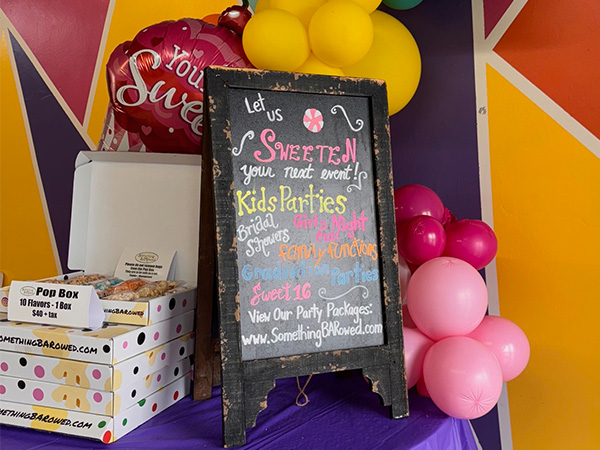 You
Swee
Let
us
SWEETEN
your next event!
Kids Parties
Bridal
Showers
Girls Night
Out
family functions
Graduation Parties
Sweet 16
View Our Party Packages:
www.SomethingBARowed.com
Pop Box
10 Flavors - 1 Box
$40 + tax
SOMETHINGBAROWED.COM
SOMETHINGBAROWED.COM
SOMETHINGBAROWED.COM